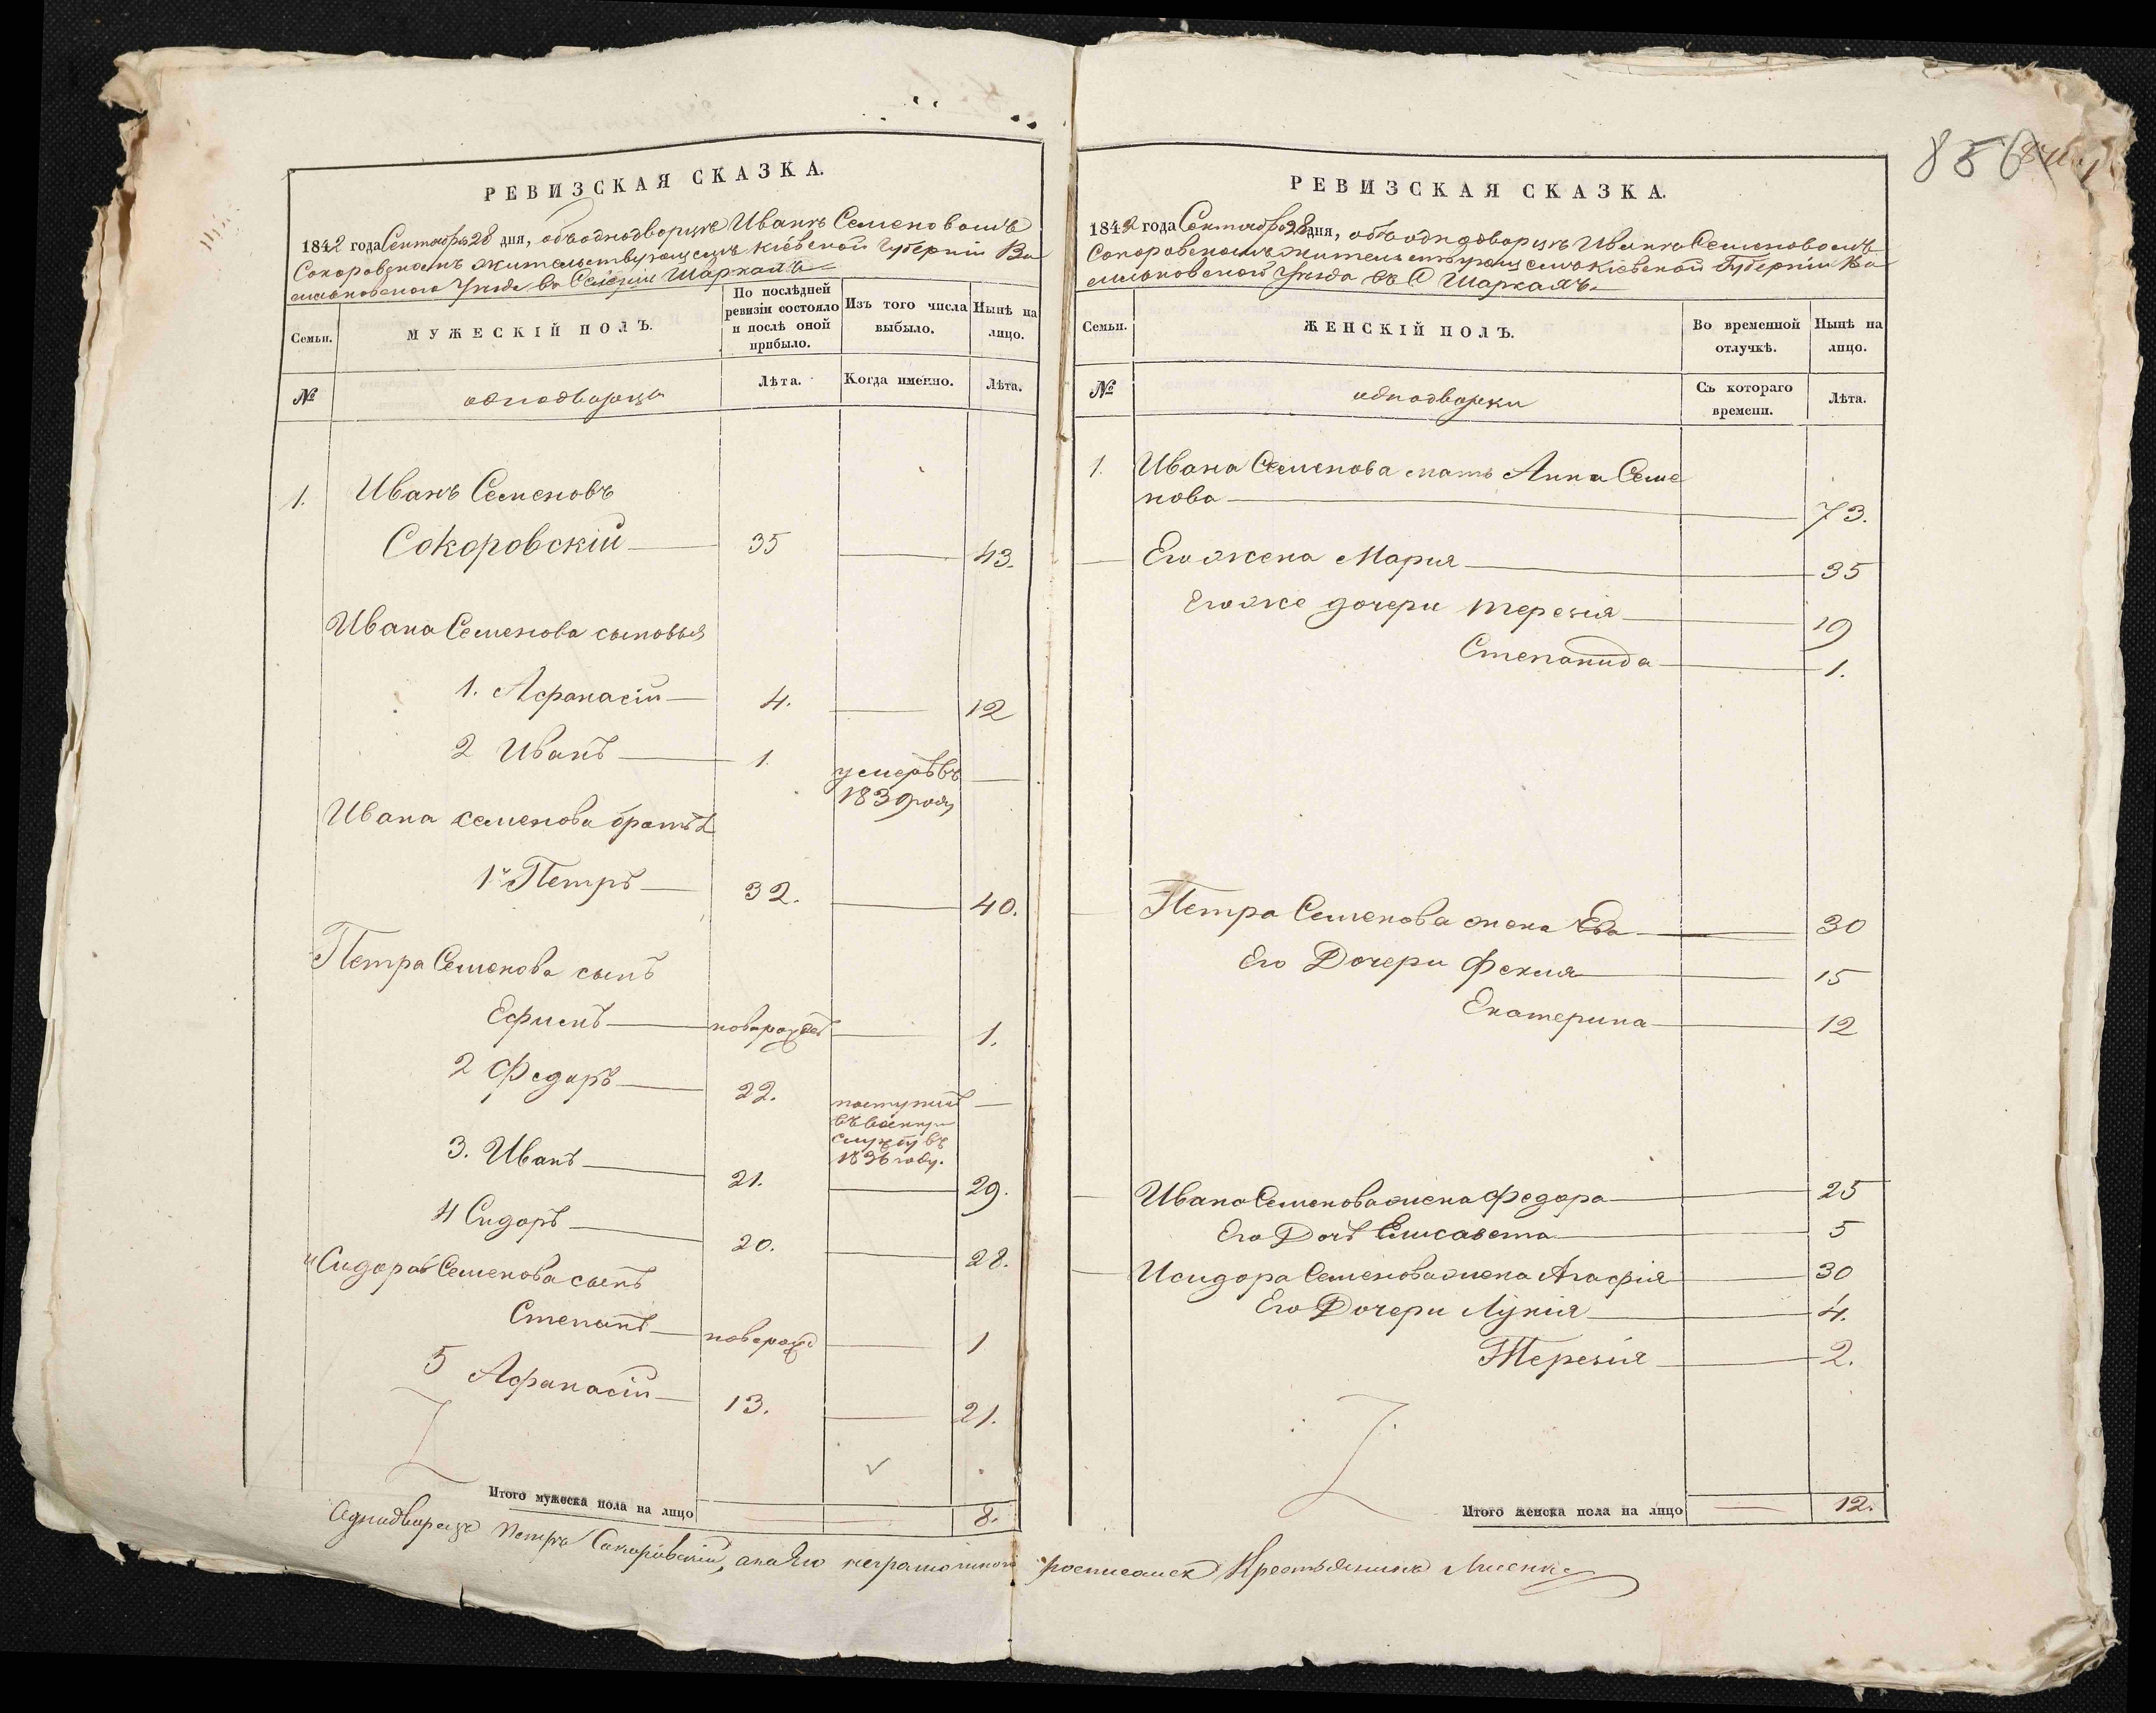 РЕВИЗСКАЯ СКАЗКА.
1842 года Сентября 28 дня, объ однодворцѣ Иванѣ Семеновомъ
Сокоровскомъ жительствующемъ Кіевской Губерніи Ва
сильковскаго Уѣзда въ Селеніи Шаркахъ
Семьи.
МУЖЕСКІЙ ПОЛЪ.
По послѣдней ревизіи состояло и послѣ оной прибыло.
Изъ того числа выбыло.
Нынѣ на лицо.
№
однодворцы
Лѣта.
Когда именно.
Лѣта.
1. Иванъ Семеновъ
Сокоровскій 35 43.
Ивана Семенова сыновья
1. Афанасій 4. 12
2 Иванъ 1. умеръ въ
1839 году
Ивана Семенова братья
1й Петръ 32. 40.
Петра Семенова сынъ
Ефимъ новорожден 1.
2 Федоръ 22. поступилъ
въ военную
службу въ
1836 году.
3. Иванъ 21. 29.
4 Сидоръ 20. 28.
Сидора Семенова сынъ
Степанъ новорожд 1
5 Афанасій 13. 21.
Итого мужеска пола на лицо 8.
РЕВИЗСКАЯ СКАЗКА.
1842 года Сентября 28 дня, объ однодворцѣ Иванѣ Семеновомъ
Сокоровскомъ жительствующемъ Кіевской Губерніи Ва
сильковской Уезда въ С Шаркахъ.
Семьи.
ЖЕНСКІЙ ПОЛЪ.
Во временной отлучкѣ.
Нынѣ на лицо.
№
однодворки
Съ котораго времени.
Лѣта.
1. Ивана Семенова мать Анна Семе
нова 73.
Его жена Мария 35
Его же дочери Терезія 19
Степанида 1.
Петра Семенова жена Ева 30
Его Дочери Фекла 15
Екатерина 12
Ивана Семенова жена Федора 25
Его Дочь Елисавета 5
Исидора Семенова жена Агафія 30
Его Дочери Лукія 4.
Терезія 2.
Итого женска пола на лицо 12.
Однодворецъ Петръ Сокоровскій, а на Его неграмотного росписался Крестьянинъ